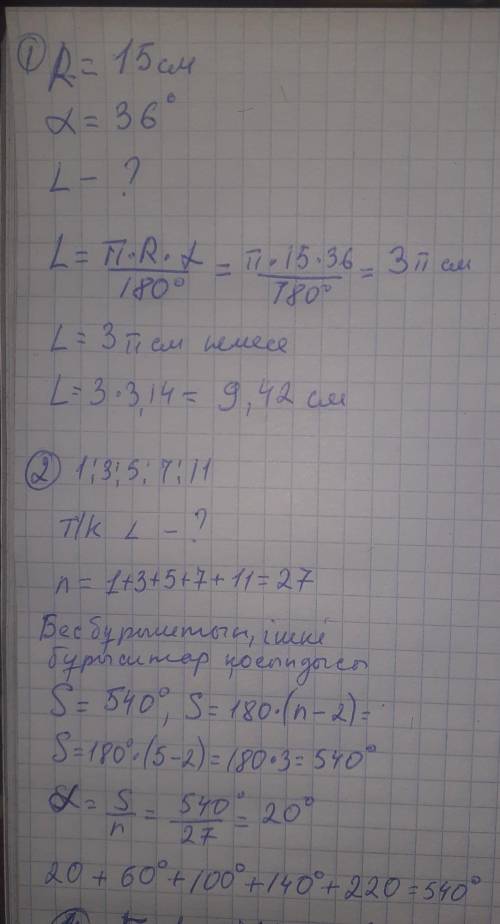 ① R = 15 см
α = 36°
L - ?
L = π·R·α/180° = π·15·36/180° = 3π см
L = 3π см немесе
L = 3·3,14 = 9,42 см
② 1;3;5;7;11
Т/к ∠ - ?
n = 1+3+5+7+11 = 27
Бес бұрыштың, ішкі
бұрыштар қосындысы
S = 540°, S = 180·(n-2) =
S = 180°·(5-2) = 180·3 = 540°
α = S/n = 540°/27 = 20°
20 + 60° + 100° + 140° + 220 = 540°